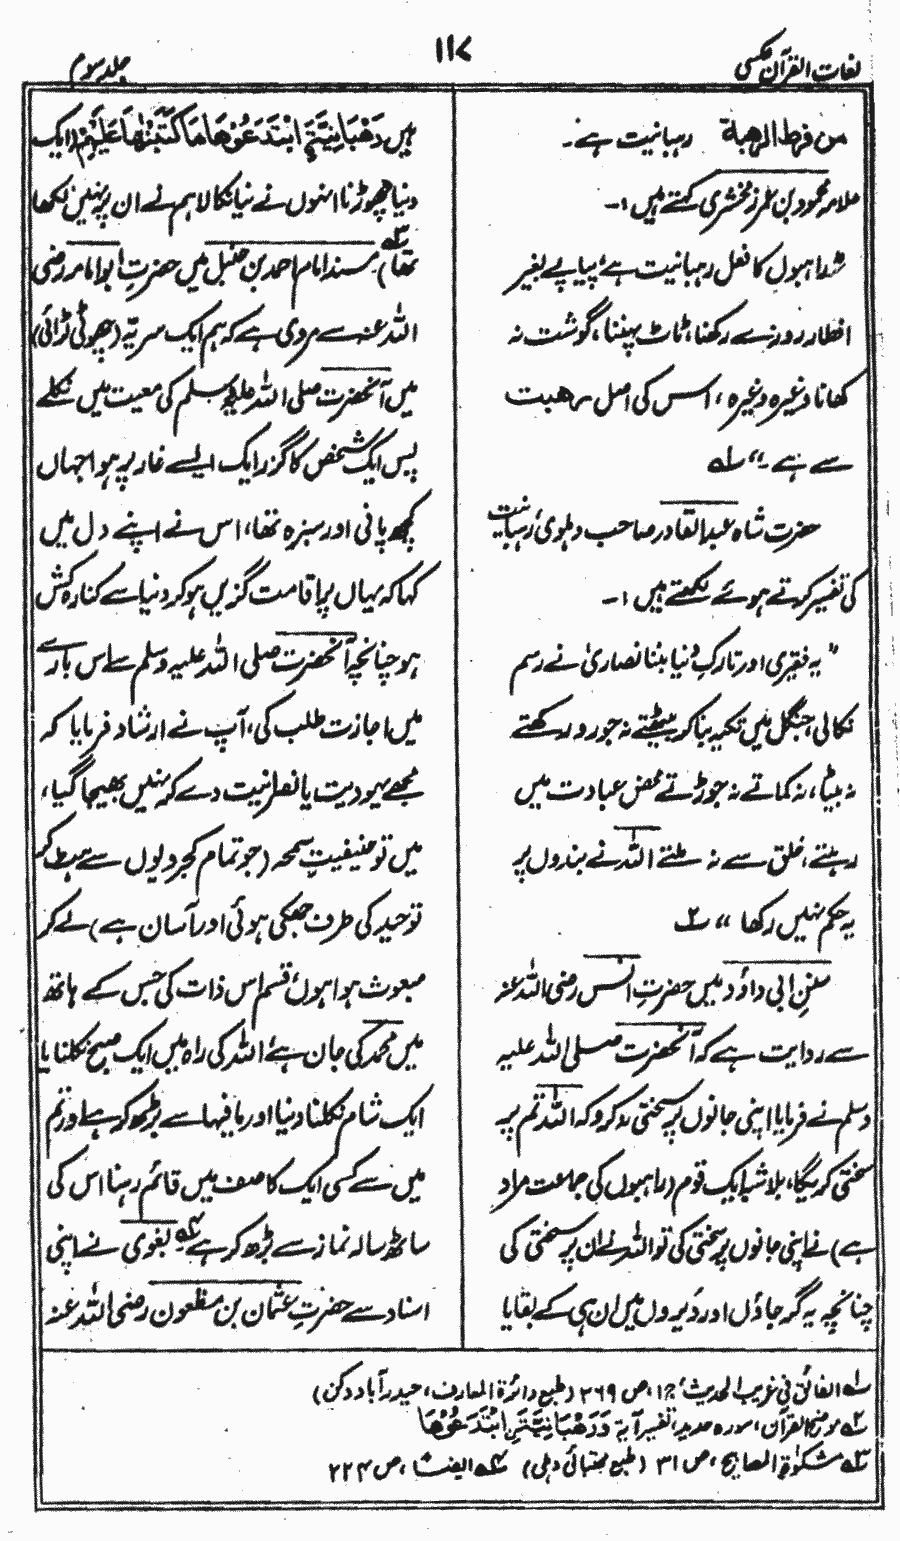 لغات القرآن عکسی
۱۱۷
جلد سوم
من فرط الرهبة رہبانیت ہے۔
علامہ محمود بن عمر زمخشری لکھتے ہیں :۔
شدا ہبوں کا فعل رہبانیت ہے، پیاپے بغیر
افطار روزے رکھنا، ٹاٹ پہننا، گوشت نہ
کھانا وغیرہ وغیرہ، اس کی اصل رهبت
سے ہے۔" لہ
حضرت شاہ عبدالقادر صاحب دہلوی، رہبانیت
کی تفسیر کرتے ہوئے لکھتے ہیں :۔
" یہ فقیری اور تارکِ دنیا بننا نصاریٰ نے رسم
نکالی، جنگل میں تکیہ بنا کر بیٹھتے نہ جورو رکھتے
نہ بیٹا، نہ کماتے نہ جوڑتے محض عبادت میں
رہتے، خلق سے نہ ملتے اللہ نے بندوں پر
یہ حکم نہیں رکھا " ۲؎
سنن ابی داؤد میں حضرتِ انس رضی اللہ عنہ
سے روایت ہے کہ آنحضرت صلی اللہ علیہ
وسلم نے فرمایا اپنی جانوں پر سختی نہ کرو کہ اللہ تم پر
سختی کریگا، بلاشبہ ایک قوم (راہبوں کی جماعت مراد
ہے) نے اپنی جانوں پر سختی کی تو اللہ نے ان پر سختی کی
چنانچہ یہ گرجاؤں اور دَیروں میں ان ہی کے بقایا
ہیں رَهْبَانِيَّةَ ابْتَدَعُوْهَا مَا كَتَبْنٰهَا عَلَيْهِمْ (ایک
دنیا چھوڑنا انہوں نے نیا نکالا ہم نے ان پر نہیں لکھا
تھا) ۳؎۔ مسند امام احمد بن حنبل میں حضرتِ ابو امامہ رضی
اللہ عنہ سے مروی ہے کہ ہم ایک سریہ (چھوٹی لڑائی)
میں آنحضرت صلی اللہ علیہ وسلم کی معیت میں نکلے
پس ایک شخص کا گزر ایک ایسے غار پر ہوا جہاں
کچھ پانی اور سبزہ تھا، اس نے اپنے دل میں
کہا کہ یہاں پر اقامت گزیں ہو کر دنیا سے کنارہ کش
ہو چنانچہ آنحضرت صلی اللہ علیہ وسلم سے اس بارے
میں اجازت طلب کی، آپ نے ارشاد فرمایا کہ
مجھے یہودیت یا نصرانیت دے کہ نہیں بھیجا گیا،
میں تو حنیفیتِ سمحہ (جو تمام کجرویوں سے ہٹ کر
توحید کی طرف جھکی ہوئی اور آسان ہے) لے کر
مبعوث ہوا ہوں، قسم اس ذات کی جس کے ہاتھ
میں محمد کی جان ہے، اللہ کی راہ میں ایک صبح نکلنا یا
ایک شام نکلنا دنیا اور مافیہا سے بڑھ کر ہے اور تم
میں سے کسی ایک کا صف میں قائم رہنا اس کی
ساٹھ سالہ نماز سے بڑھ کر ہے ۴؎۔ بغوی نے اپنی
اسناد سے حضرتِ عثمان بن مظعون رضی اللہ عنہ
لہ الفائق فی غریب الحدیث، ج۱، ص ۲۶۹ (طبع دائرۃ المعارف، حیدرآباد دکن)
۲؎ موضح القرآن، سورہ حدید، تفسیر آیۃ وَرَهْبَانِيَّةَ ابْتَدَعُوْهَا
۳؎ مشکوٰۃ المصابیح، ص ۳۱ (طبع مجتبائی دہلی) ۴؎ ایضاً، ص ۲۲۴